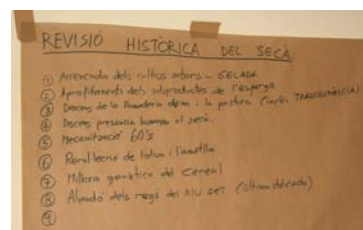 REVISIÓ HISTÒRICA DEL SECÀ
① Arrencada dels cultius arboris – GELADA
② Aprofitaments dels subproductes de l'esporga
③ Descens de la Ramaderia i la pastura (inclòs TRANSHUMÀNCIA)
④ Descens presència humana al secà.
⑤ Mecanització 60's
⑥ l'ametlla
⑦ Millora genètica del Cereal
⑧ Abandó dels regs del riu SET (última dècada)
⑨